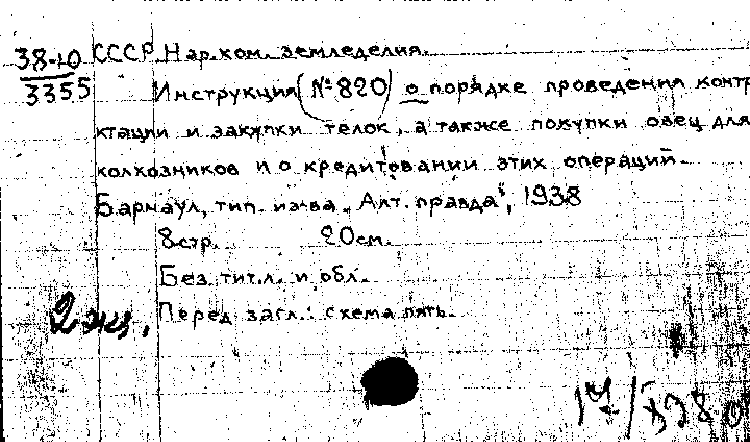 38-10
3355
СССР. Нар. ком. земледелия.
Инструкция (№ 820) о порядке проведения контр
ктации и закупки телок, а также покупки овец для
колхозников и о кредитовании этих операций.
Барнаул, тип. из-ва „Алт. правда", 1938
8 стр. 20 см.
Без тит. л. и обл.
2 экз. Перед загл.: схема пять.